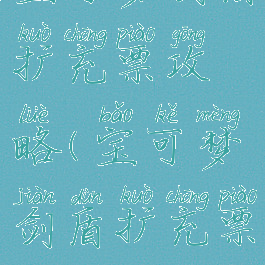 kuò chōng piào gōng
扩充票攻
lüè bǎo kě mèng
略(宝可梦
jiàn dùn kuò chōng piào
剑盾扩充票